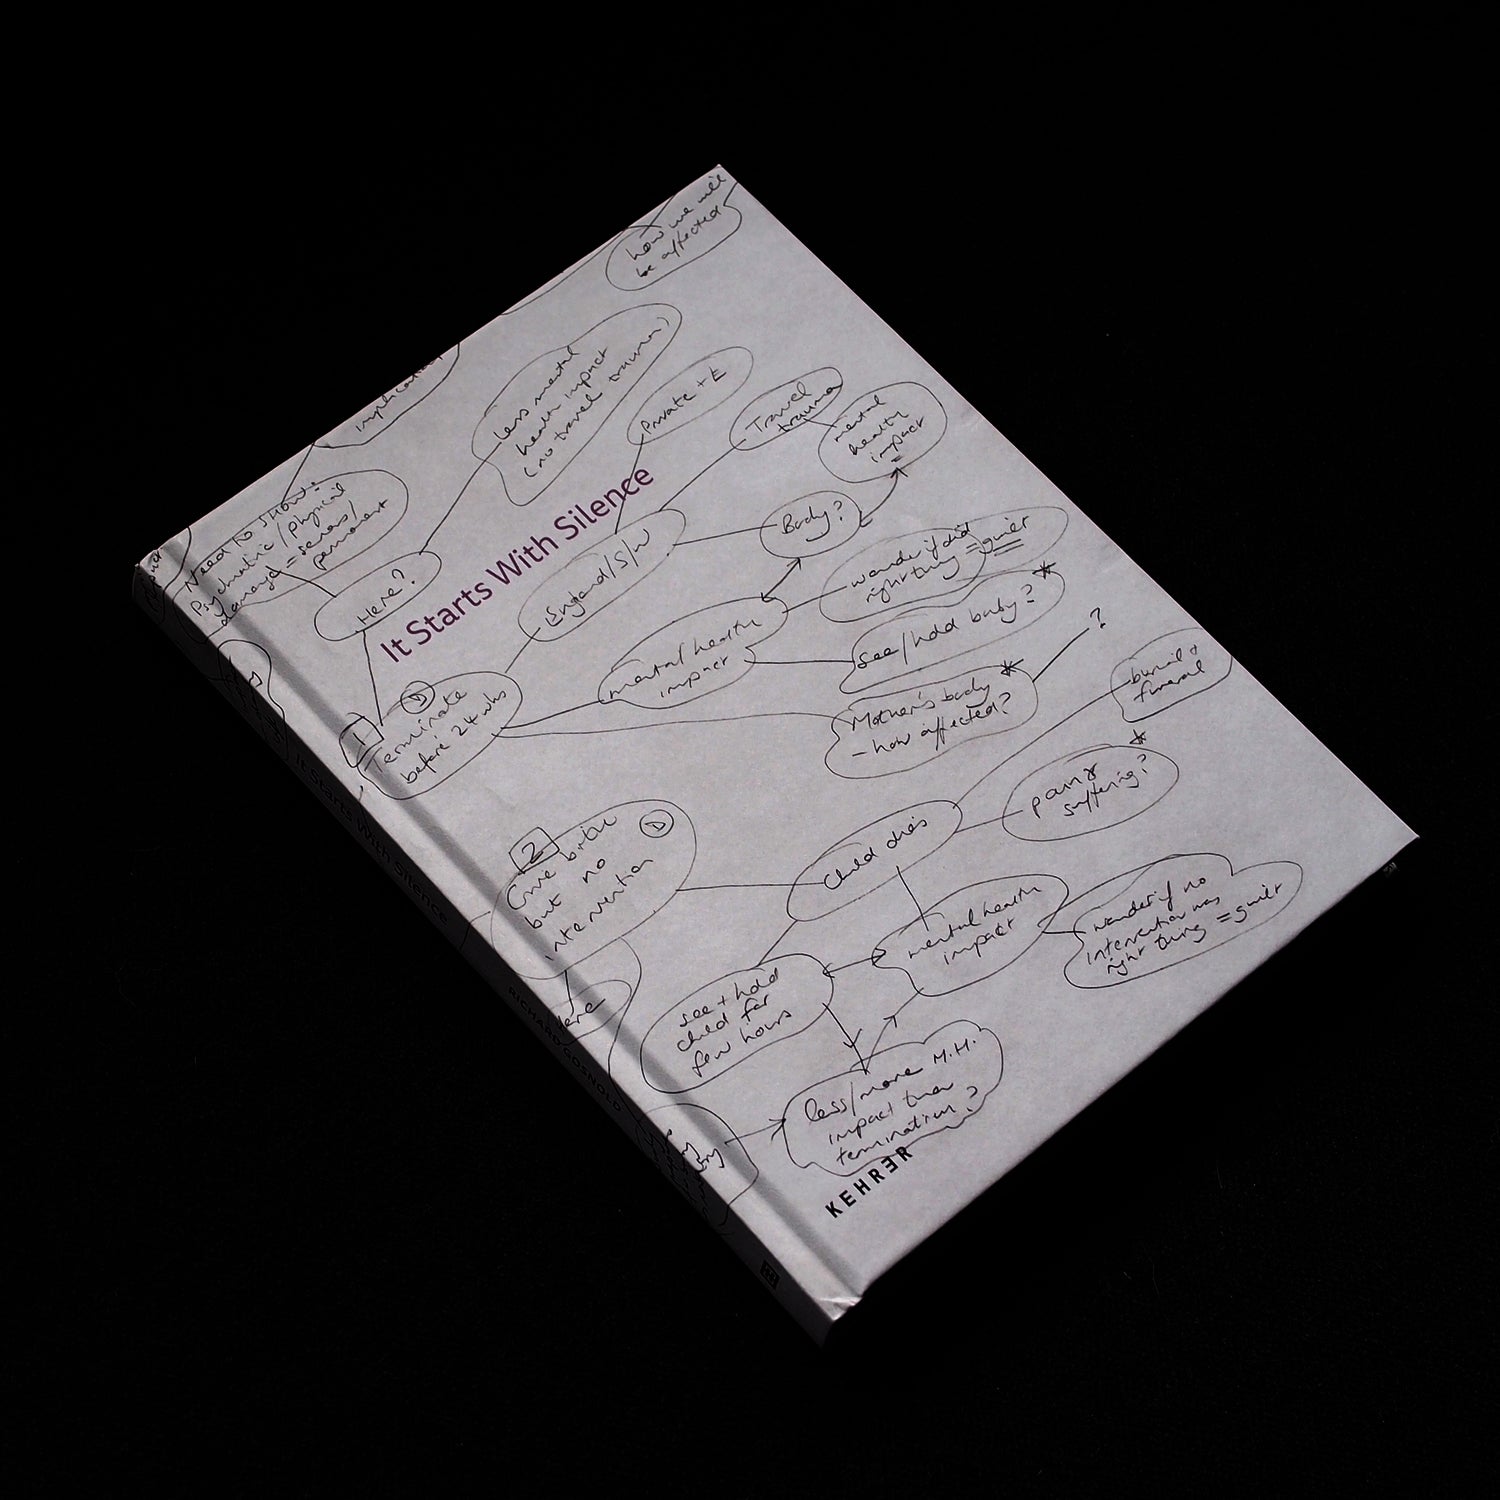 how we will
be affected
less mental
health impact
(no travel trauma)
Private + £
Travel
trauma
mental
health
impact
Need to show:
Psychiatric/physical
damage = serious/
permanent
Here?
It Starts With Silence
England/S/W
Body?
wonder if did
right thing = guilt
mental health
impact
see/hold baby?
?
Mother's body
- how affected?
burial +
funeral
1
D
Terminate
before 24 wks
pain &
suffering?
2
D
Give birth
but no
intervention
Child dies
mental health
impact
wonder if no
intervention was
right thing = guilt
Here
see + hold
child for
few hours
less/more M.H.
impact than
termination?
KEHRER
It Starts With Silence
RICHARD GOSNOLD